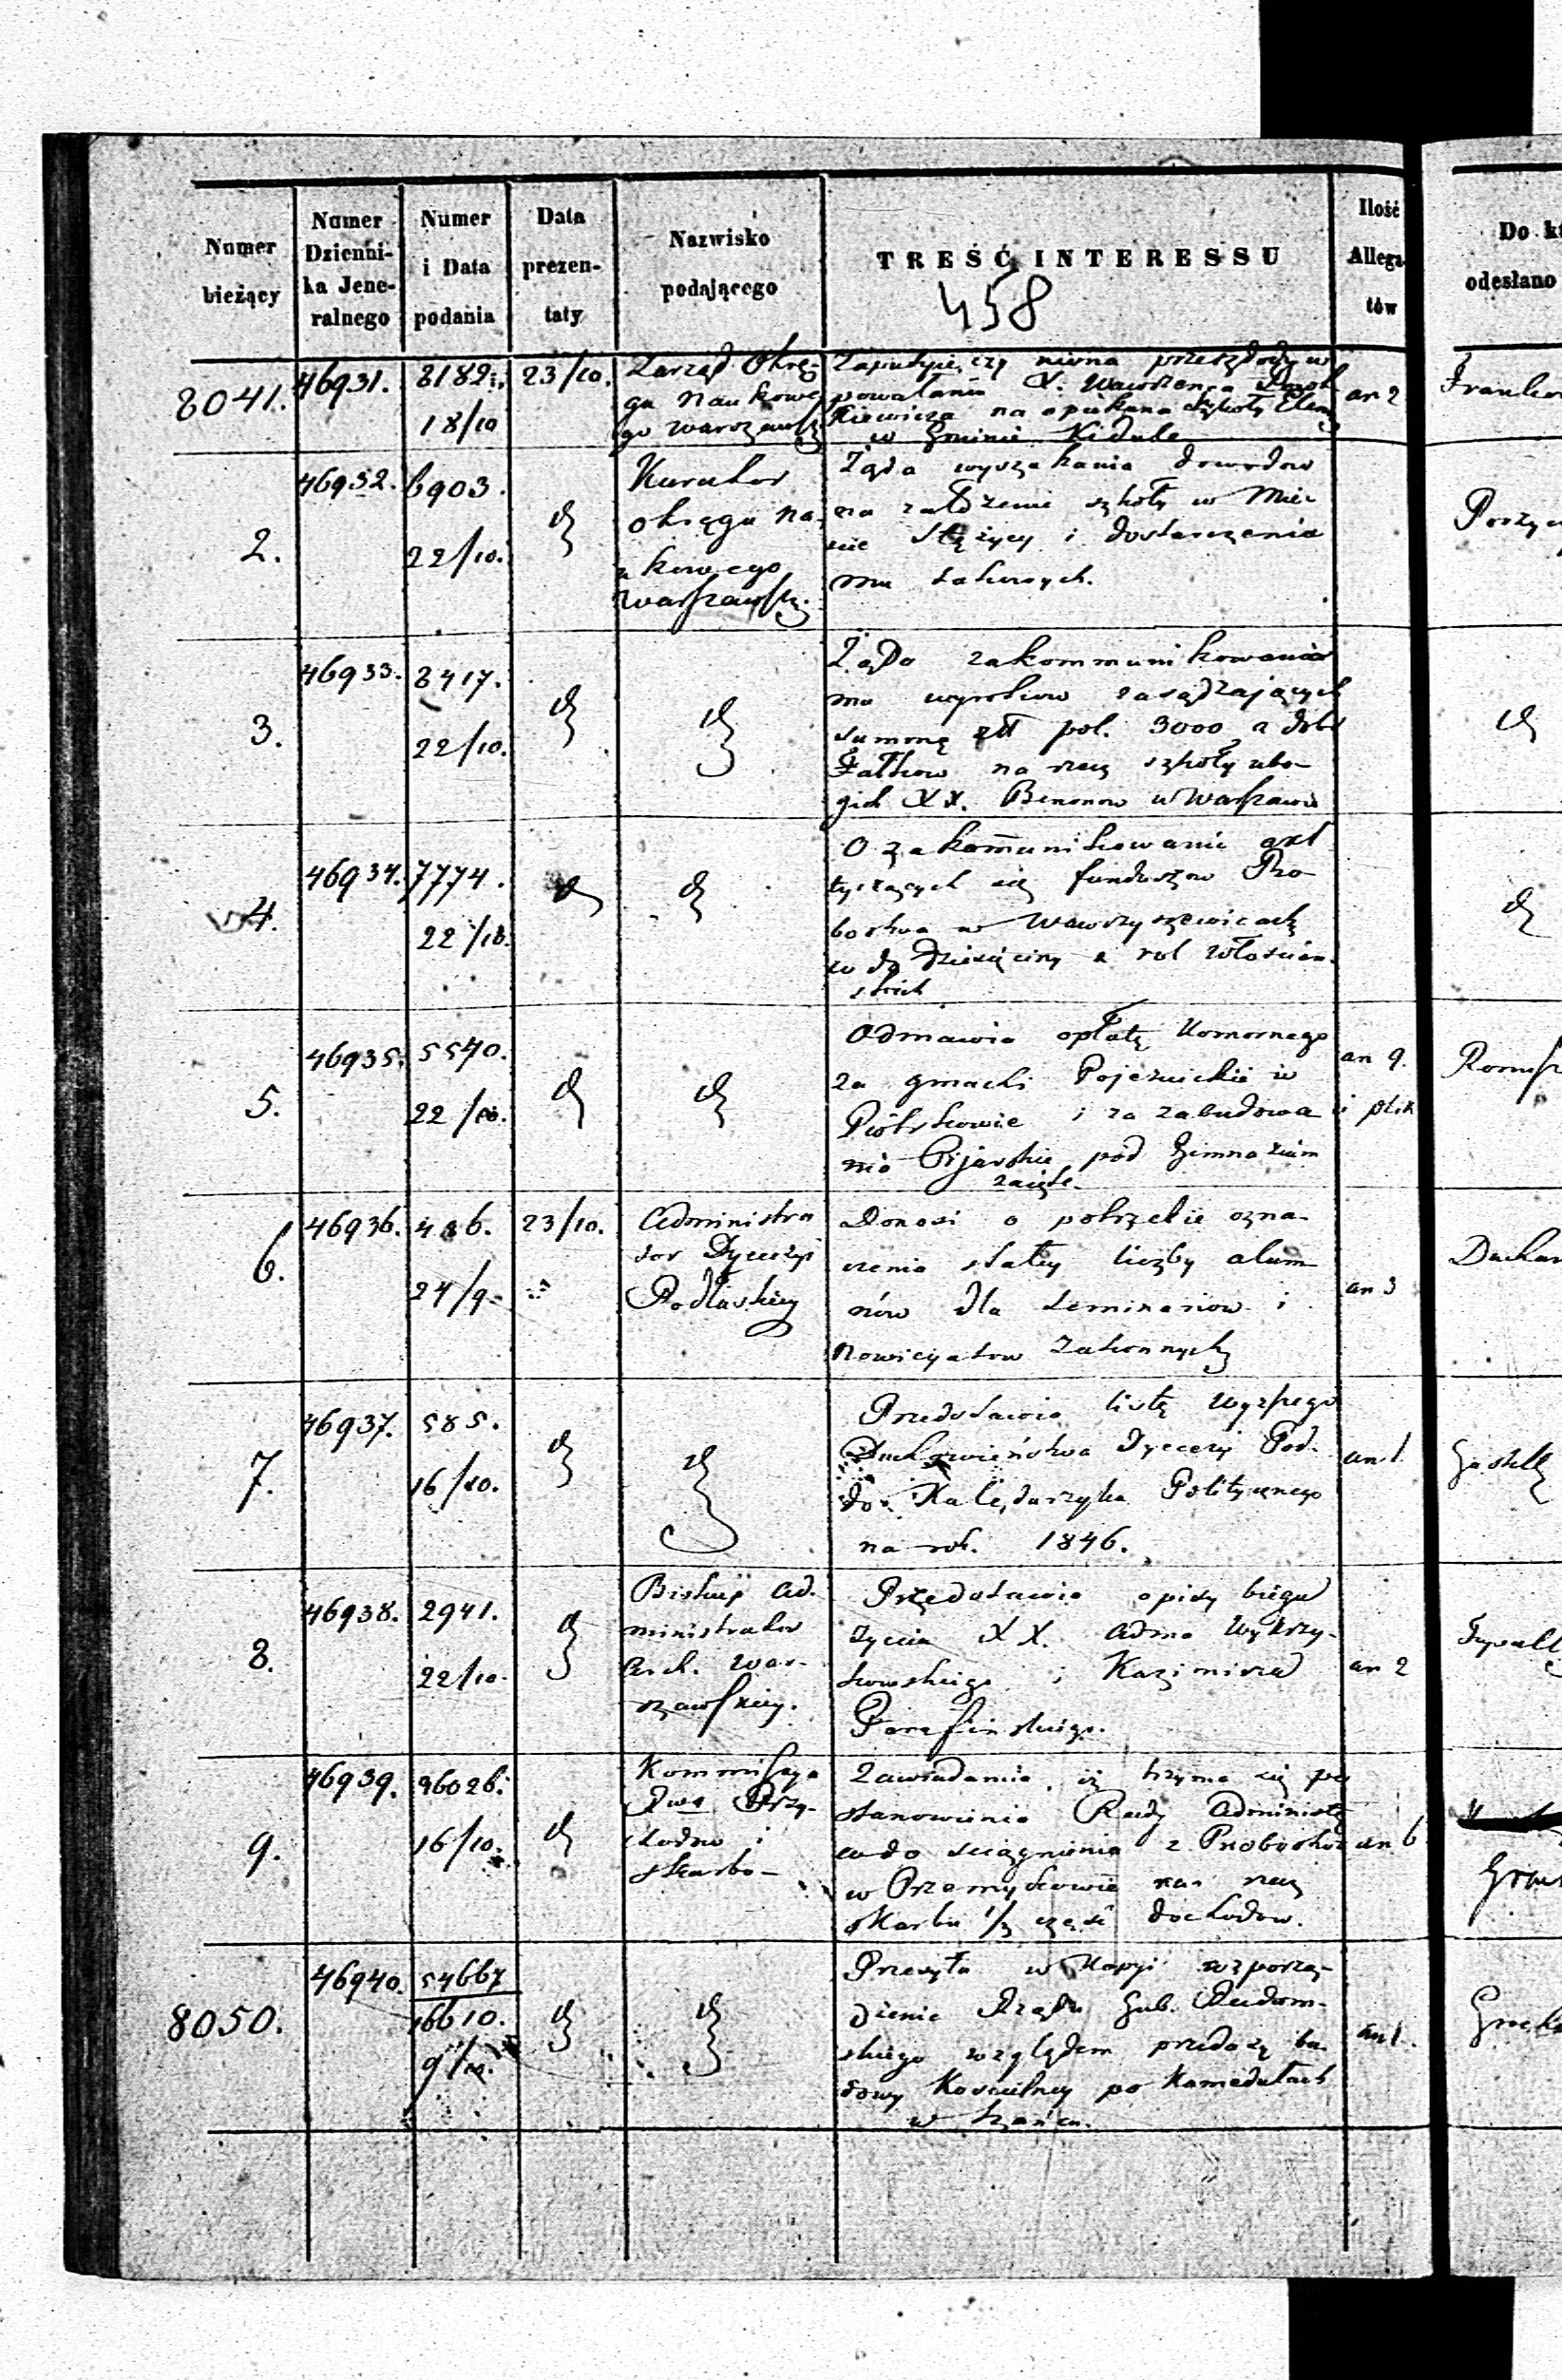 Numer bieżący
Numer Dzienni-ka Jene-ralnego
Numer i Data podania
Data prezen-taty
Nazwisko podającego
TREŚĆ INTERESSU
458
Ilość Allega-tów
Do kt
odesłano
8041. 46931. 8182. 18/10 23/10.
Zarząd Okrę-
gu Naukowe
go Warszawsk
Zapytuje, czy niema przeszkody w
powołaniu X. Wawrzeńca
na opiekuna Szkoły Elem
w Gminie Kidule
an 2
2. 46932. 6903. 22/10.
Kurator
okręgu na
ukowego
Warszawsk.
Żąda wyszukania dowodów
na założenie szkoły w Mie-
ście Stężycy i dostarczenia
mu takowych.
3. 46933. 8417. 22/10.
Żąda zakommunikowania
mu wyroków zasądzających
summę zł pol. 3000 z dóbr
Fałkow na rzecz szkoły ubo-
gich XX. Benonow w Warszawie
4. 46934. 7774. 22/10.
O zakomunikowanie akt
tyczących się funduszow Pro-
bostwa w Wawrzyszewicach
co do Dziesięciny z rol włościań-
skich
5. 46935. 5540. 22/10.
Odmawia opłatę Komornego
za gmachi Pojezuickie w
Piotrkowie i za zabudowa
nia Pijarskie pod Gimnazium
zajęte.
an 9.
i plik
6. 46936. 486. 24/9. 23/10.
Administra
tor Dyecezyi
Podlaskiey
Donosi o potrzebie ozna-
czenia stałey liczby alum-
nów dla seminariow i
Nowicyatow Zakonnych
an 3
7. 46937. 585. 16/10.
Przedstawia listę wyższego
Duchowieństwa Dyecezyi Pod.
do Kalędarzyka Politycznego
na rok 1846.
an 1.
8. 46938. 2941. 22/10.
Biskup Ad-
ministrator
Arch. War-
szawskiey.
Przedstawia opisy biegu
życia XX. Adma Wykrzy-
kowskiego i Kazimirza
Parafińskiego.
an 2
9. 46939. 96026. 16/10.
Kommissya
Rwa Przy-
chodow i
skarbu
Zawiadamia, iż trzyma się po
stanowienia Rady Administr
co do ściągnienia z Probostwa
w Przemykowie na rzecz
skarbu 1/3 część dochodow.
an 6
8050. 46940. 54667
16610.
9/10.
Przesyła w Kopji rozporzą-
dzenie Rządu Gub. Radom-
skiego względem przedaży bu-
dowy Kościelney po Kamedułach
w Szańcu.
an 1.